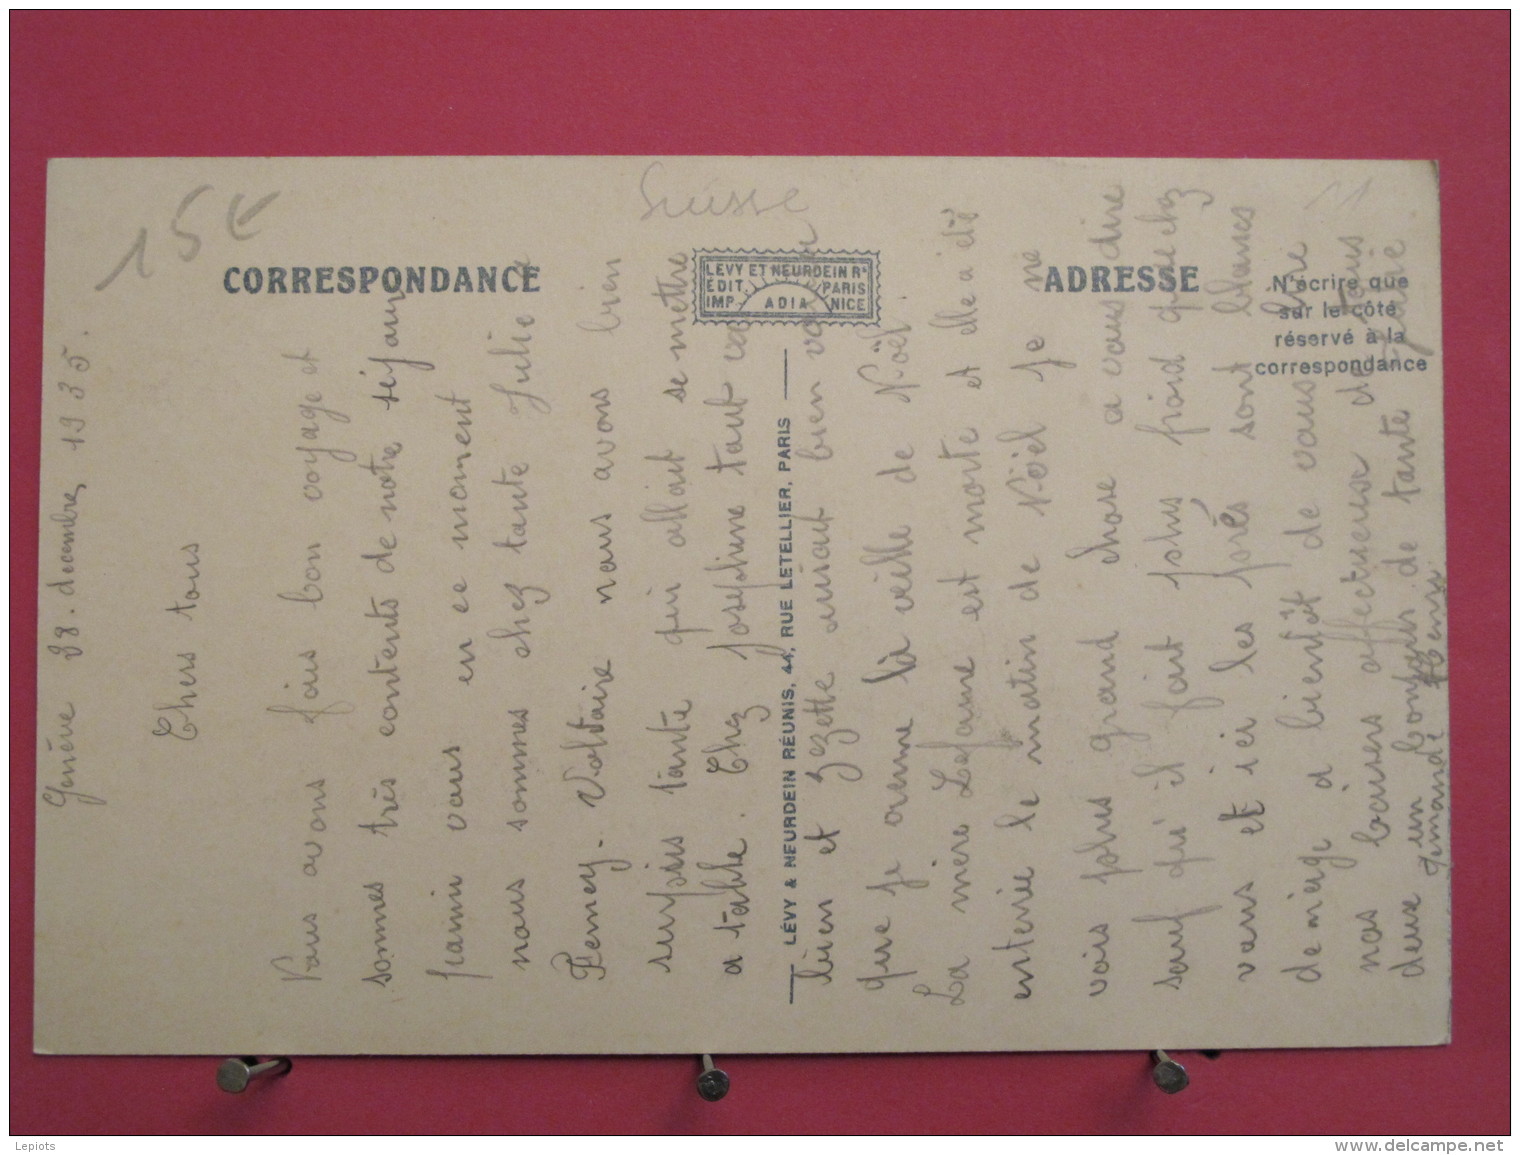 15€
Suisse
CORRESPONDANCE
LEVY ET NEURDEIN Rs
EDIT. PARIS
IMP. ADIA NICE
ADRESSE
N'écrire que
sur le côté
réservé à la
correspondance
LÉVY & NEURDEIN RÉUNIS, 44, RUE LETELLIER, PARIS
Genève 28. decembre, 1935.
Chers tous
Nous avons fais bon voyage et
sommes très contents de notre séjour
parmi vous en ce moment
nous sommes chez tante Julie a
Ferney-Voltaire nous avons bien
surpris tante qui allait se mettre
a table. Chez Josephine tout va
bien et Zezette aussi bien
que je revienne la veille de Noël.
La mère Lefaure est morte et elle a été
enterrée le matin de Noël je ne
vois plus grand chose a vous dire
sauf qu'il fait plus froid que chez
vous et ici les près sont blancs
de neige a bientôt de vous lire
nos baisers affectueux de tous
deux un bonjour de tante Julie
demande
Lepiots
www.delcampe.net